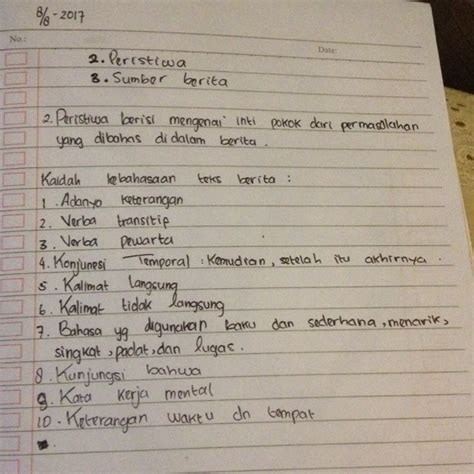 8/8-2017
No.:
Date:
2. Peristiwa
3. Sumber berita
2. Peristiwa berisi mengenai inti pokok dari permasalahan
yang dibahas didalam berita.
Kaidah kebahasaan teks berita :
1. Adanya keterangan
2. Verba transitip
3. Verba pewarta
4. Konjunesi Temporal : Kemudian, setelah itu akhirnya.
5. Kalimat langsung
6. Kalimat tidak langsung
7. Bahasa yg digunakan baku dan sederhana, menarik,
singkat, padat, dan lugas.
8. Kunjungsi bahwa
9. Kata kerja mental
10. Keterangan waktu dn tempat